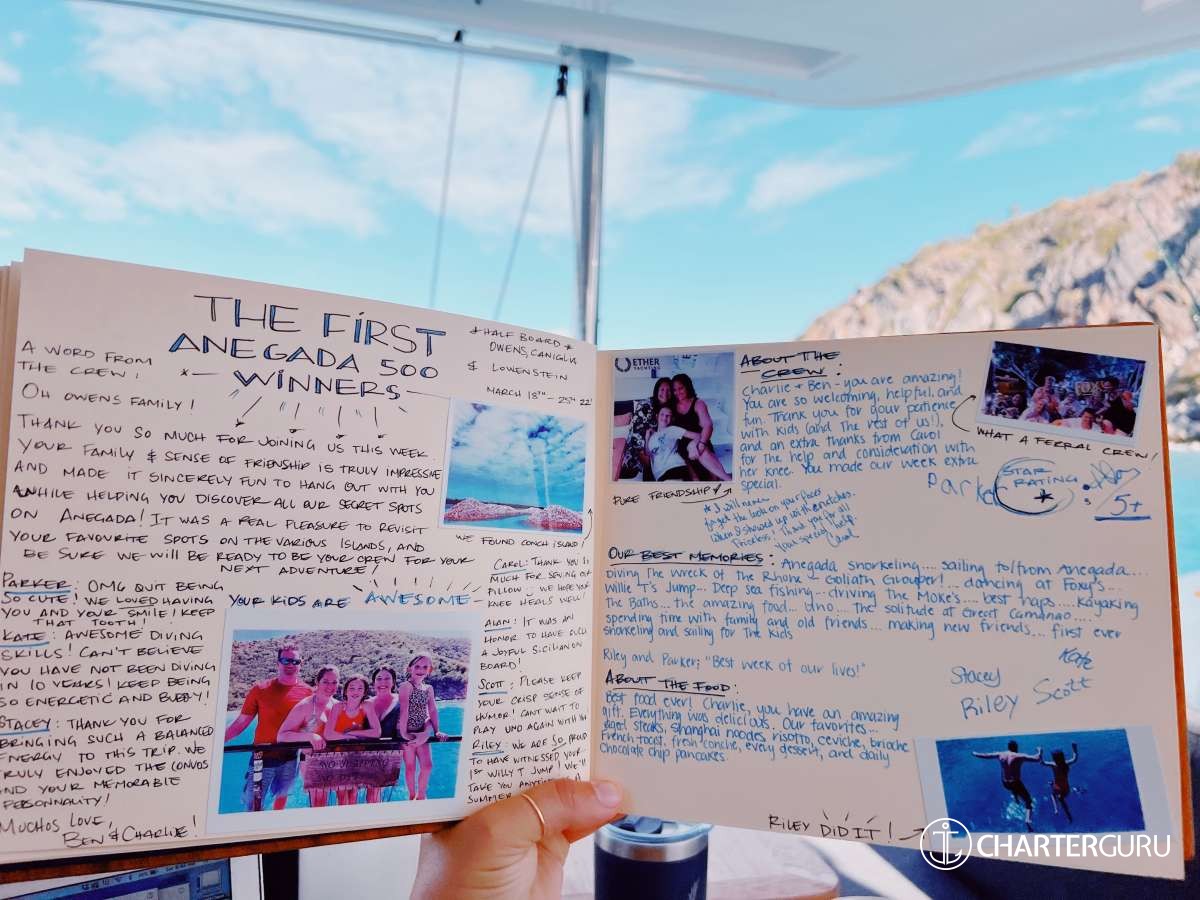 THE FIRST
ANEGADA 500
WINNERS
* HALF BOARD *
OWENS, CANIGLIA
& LOWENSTEIN
MARCH 18TH - 25TH 22'
A WORD FROM
THE CREW!
OH OWENS FAMILY!
THANK YOU SO MUCH FOR JOINING US THIS WEEK.
YOUR FAMILY & SENSE OF FRIENSHIP IS TRULY IMPRESSIVE
AND MADE IT SINCERELY FUN TO HANG OUT WITH YOU
WHILE HELPING YOU DISCOVER ALL OUR SECRET SPOTS
ON ANEGADA! IT WAS A REAL PLEASURE TO REVISIT
YOUR FAVOURITE SPOTS ON THE VARIOUS ISLANDS, AND
BE SURE WE WILL BE READY TO BE YOUR CREW FOR YOUR
NEXT ADVENTURE!
WE FOUND CONCH ISLAND!
PARKER: OMG QUIT BEING
SO CUTE! WE LOVED HAVING
YOU AND YOUR SMILE! KEEP
THAT TOOTH!
KATE: AWESOME DIVING
SKILLS! CAN'T BELIEVE
YOU HAVE NOT BEEN DIVING
IN 10 YEARS! KEEP BEING
SO ENERGETIC AND BUBBY!
STACEY: THANK YOU FOR
BRINGING SUCH A BALANCED
ENERGY TO THIS TRIP. WE
TRULY ENJOYED THE CONVOS
AND YOUR MEMORABLE
PERSONNALITY!
MUCHOS LOVE,
BEN & CHARLIE!
YOUR KIDS ARE AWESOME
CAROL: THANK YOU SO
MUCH FOR SEWING OUR
PILLOW. WE HOPE YOUR
KNEE HEALS WELL!
ALAN: IT WAS AN
HONOR TO HAVE SUCH
A JOYFUL SICILIAN ON
BOARD!
SCOTT: PLEASE KEEP
YOUR CRISP SENSE OF
HUMOR! CANT WAIT TO
PLAY UNO AGAIN WITH YOU
RILEY: WE ARE SO PROUD
TO HAVE WITNESSED YOUR
1ST WILLY T JUMP! WE'LL
TAKE YOU
SUMMER
ETHER
YACHTING
PURE FRIENDSHIP
ABOUT THE
CREW:
Charlie + Ben - you are amazing!
You are so welcoming, helpful, and
fun. Thank you for your patience
with kids (and the rest of us!),
and an extra thanks from Carol
for the help and consideration with
her knee. You made our week extra
special.
* I will never
forget the look on your faces
when I showed up with crutches.
Priceless! Thank you for all
your special help.
Carol
FOXY'S
WHAT A FERRAL CREW!
Parker
STAR
RATING:
5+
OUR BEST MEMORIES: Anegada snorkeling.... sailing to/from Anegada....
Diving the wreck of the Rhone - Goliath Grouper!... dancing at Foxy's...
Willie T's Jump... Deep sea fishing... driving the Moke's.... best naps.... kayaking
The Baths... the amazing food... Uno... The solitude at Great Camanao....
spending time with family and old friends... making new friends... first ever
snorkeling and sailing for the kids
Riley and Parker; "Best week of our lives!"
Stacey
Kate
Riley
Scott
ABOUT THE FOOD:
Best food ever! Charlie, you have an amazing
gift. Everything was delicious. Our favorites...
steaks, shanghai noodes, risotto, ceviche, brioche
French toast, fresh conche, every dessert, and daily
Chocolate chip pancakes.
RILEY DID IT!
CHARTERGURU